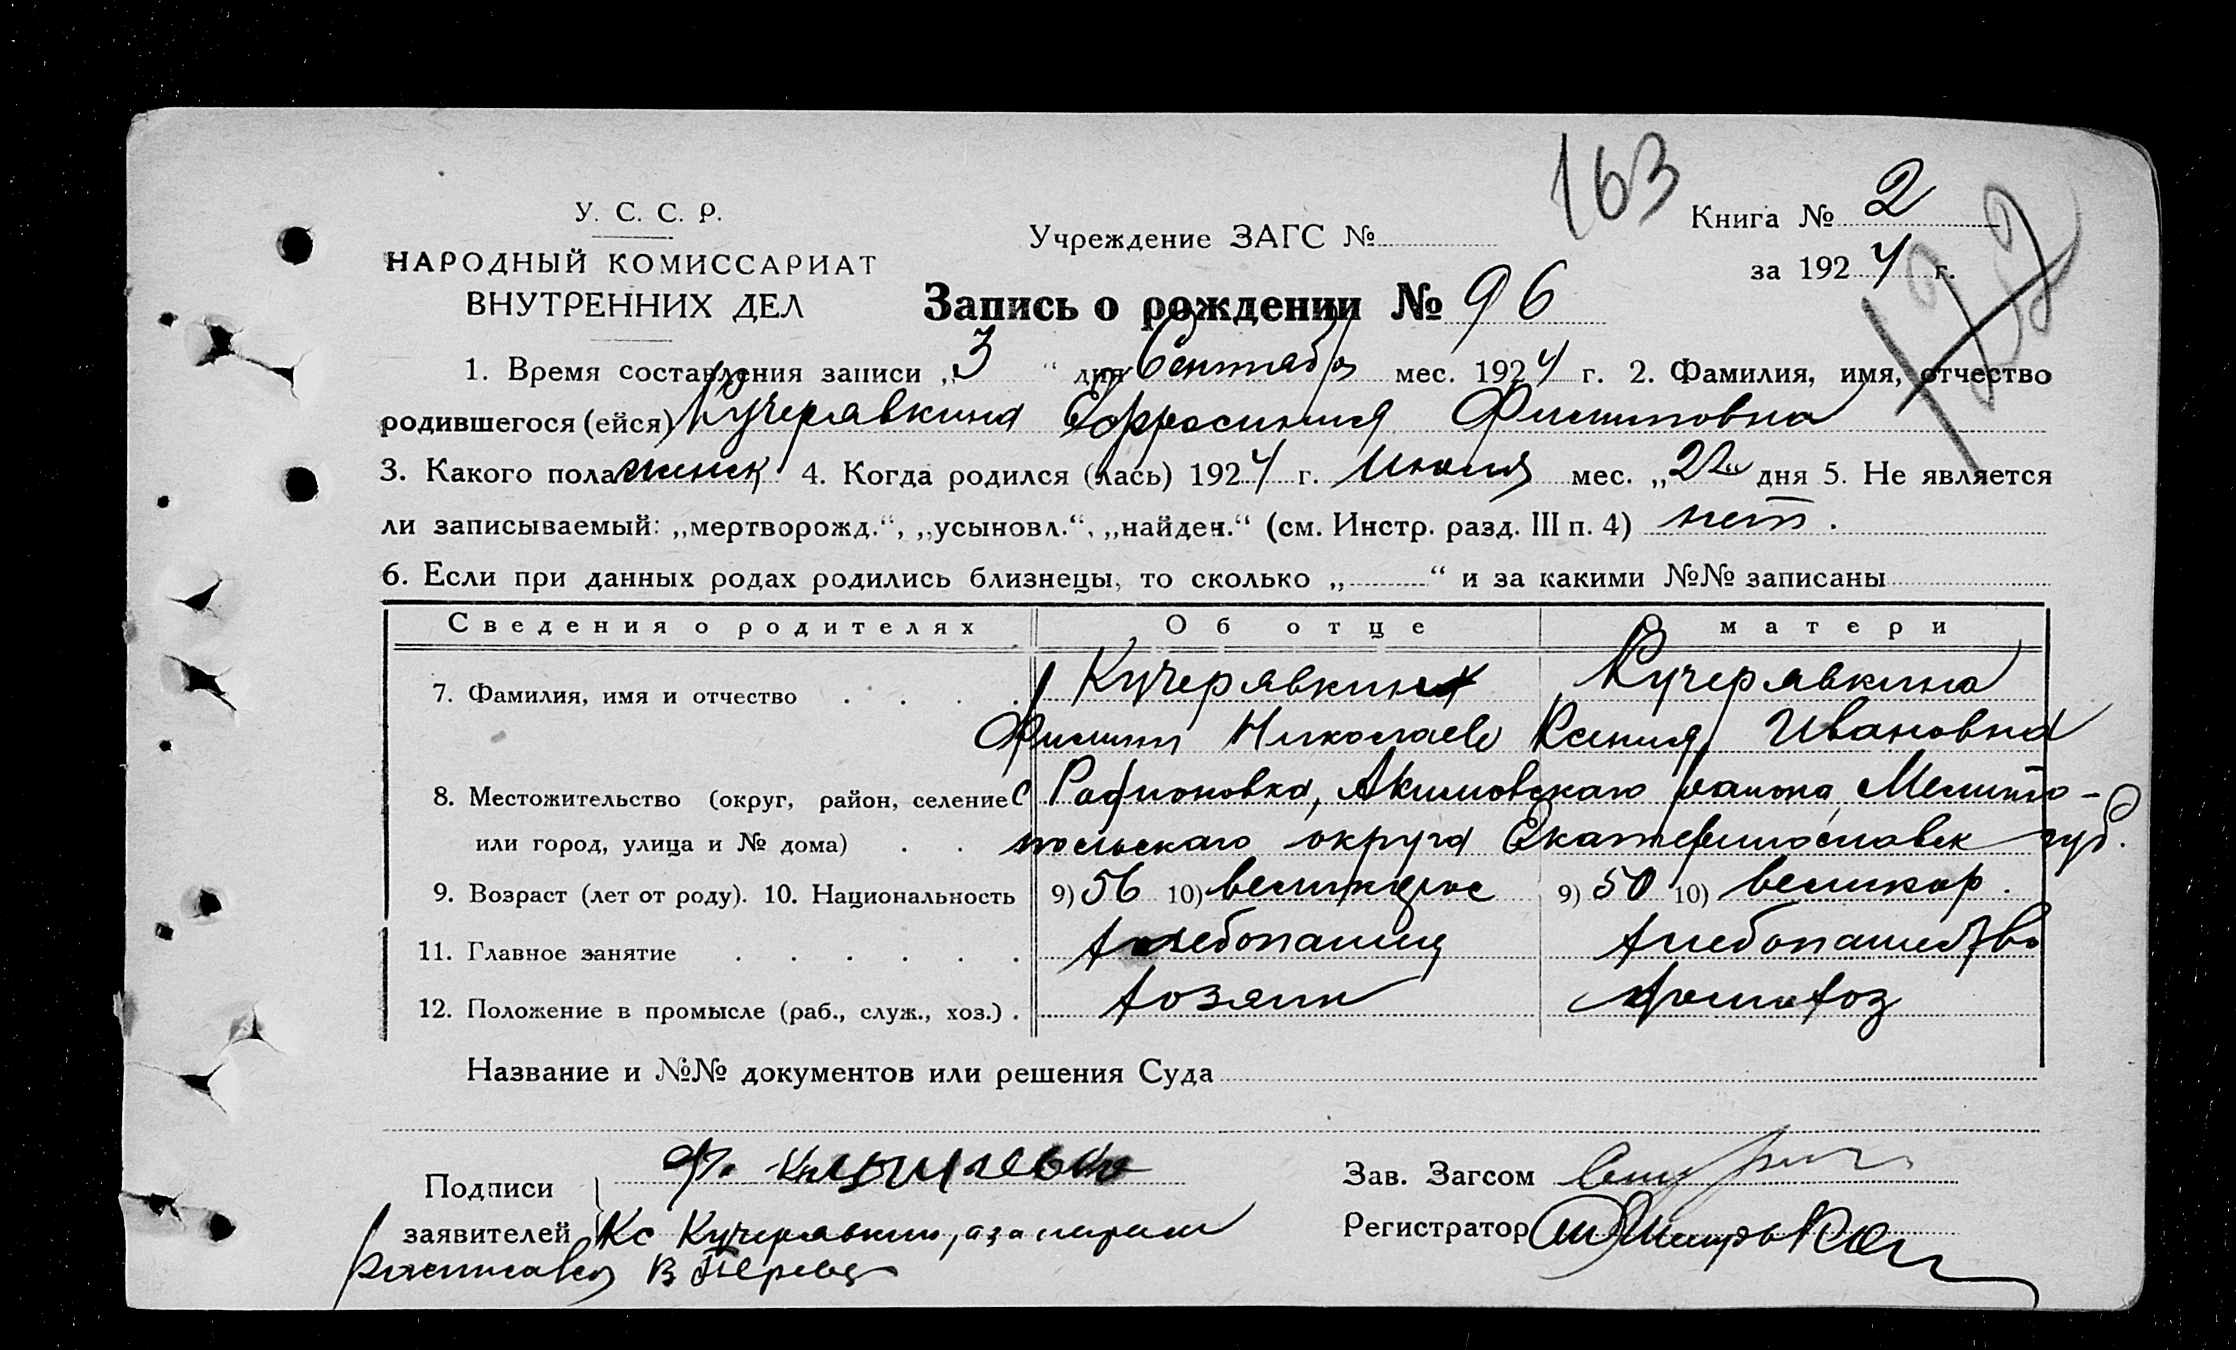 163
У. С. С. Р.
НАРОДНЫЙ КОМИССАРИАТ
ВНУТРЕННИХ ДЕЛ
Учреждение ЗАГС №
Книга № 2
за 1924 г.
122
Запись о рождении № 96
1. Время составления записи „3“ дня Сентября мес. 1924 г. 2. Фамилия, имя, отчество
родившегося (ейся) Кучерявкина Ефросиния Филипповна
3. Какого пола женск 4. Когда родился (лась) 1924 г. Июля мес. „22“ дня 5. Не является
ли записываемый: „мертворожд.“, „усыновл.“, „найден.“ (см. Инстр. разд. III п. 4) нет.
6. Если при данных родах родились близнецы, то сколько „ “ и за какими №№ записаны
Сведения о родителях Об отце О матери
7. Фамилия, имя и отчество . . . . Кучерявкин Кучерявкина
Филипп Николаев Ксения Ивановна
8. Местожительство (округ, район, селение с Родионовка, Акимовскаго района Мелито-
или город, улица и № дома) . . польскаго округа Екатеринославск губ.
9. Возраст (лет от роду). 10. Национальность 9) 56 10) великорос 9) 50 10) великор.
11. Главное занятие . . . . . . хлебопашец хлебопашество
12. Положение в промысле (раб., служ., хоз.) . хозяин домохоз
Название и №№ документов или решения Суда
Подписи Ф.
заявителей Кс Кучерявкин, а за неграм
росписався В
Зав. Загсом
Регистратор